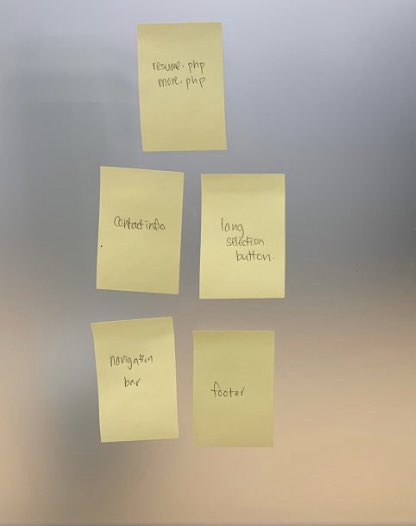 resume.php
more.php
contact info
lang
selection
button.
navigation
bar
footer